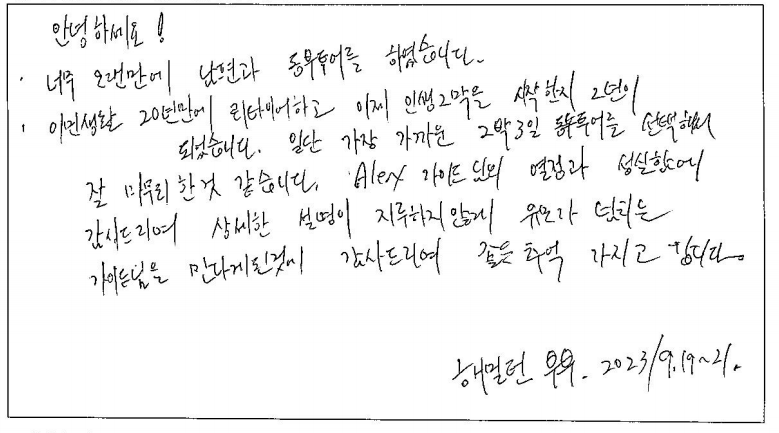 안녕하세요!
· 너무 오랜만에 남편과 동부투어를 하였습니다.
· 이민생활 20년만에 리타이어하고 이제 인생2막을 시작한지 2년이
되었습니다. 일단 가장 가까운 2박3일 동부투어를 선택해서
잘 마무리한것 같습니다. Alex 가이드님의 열정과 성실함에
감사드리며 상세한 설명이 지루하지않게 유모가 넘치는
가이드님을 만나게된것에 감사드리며 좋은추억 가지고 갑니다.
해밀턴 2023/9.19~21.